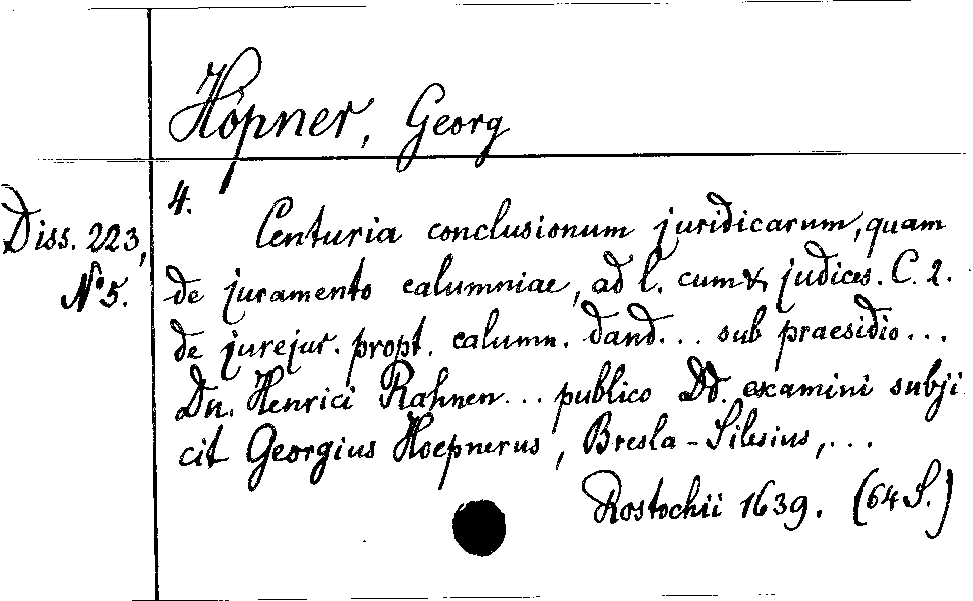 Höpner, Georg
4.
Diss. 223,
No 5.
Centuria conclusionum juridicarum, quam
de juramento calumniae, ad l. cum & judices. C. 2.
de jurejur. propt. calumn. dand... sub praesidio...
Dn. Henrici Rahnen... publico Dd. examini subji
cit Georgius Hoepnerus, Bresla-Silesius,...
Rostochii 1639. (64 S.)